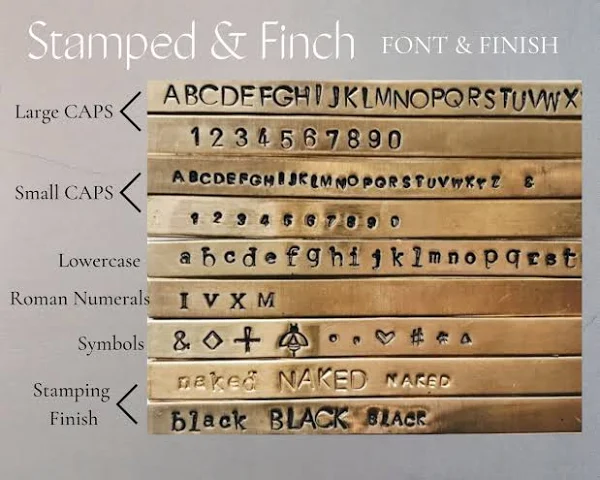 Stamped & Finch FONT & FINISH
Large CAPS
ABCDEFGHIJKLMNOPQRSTUVWX
1234567890
Small CAPS
ABCDEFGHIJKLMNOPQRSTUVWXYZ &
1234567890
Lowercase
abcdefghijklmnopqrst
Roman Numerals
I V X M
Symbols
& ◇ + • , ♡ # *
Stamping
Finish
naked NAKED NAKED
black BLACK BLACK